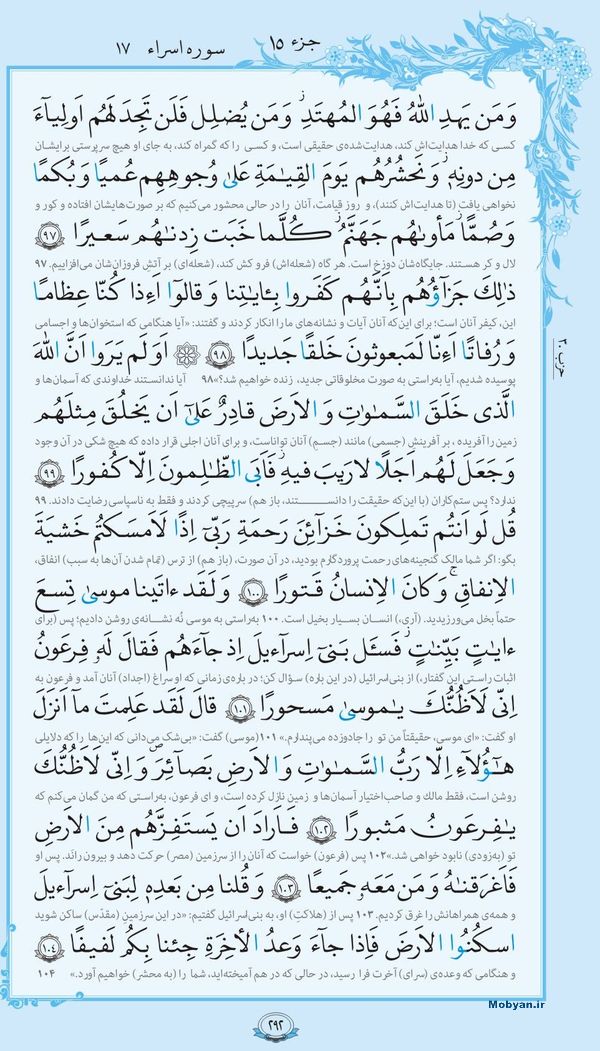 جزء ۱۵
سوره اسراء ۱۷
وَمَن يَهدِ اللهُ فَهُوَ المُهتَدِ وَمَن يُضلِل فَلَن تَجِدَ لَهُم اَولِياءَ
کسی که خدا هدایت‌اش کند، هدایت‌شده‌ی حقیقی است، و کسی را که گمراه کند، به جای او هیچ سرپرستی برایشان
مِن دونِه وَنَحشُرُهُم يَومَ القِيامَةِ عَلى وُجوهِهِم عُميًا وَبُكمًا
نخواهی یافت (تا هدایت‌اش کنند)، و روز قیامت، آنان را در حالی محشور می‌کنیم که بر صورت‌هایشان افتاده و کور و
وَصُمًّا مَأواهُم جَهَنَّمُ كُلَّما خَبَت زِدناهُم سَعيرًا ﴿۹۷﴾
لال و کر هستند. جایگاه‌شان دوزخ است. هر گاه (شعله‌اش) فرو کش کند، (شعله‌ای) بر آتش فروزان‌شان می‌افزاییم. ۹۷
ذٰلِكَ جَزاؤُهُم بِاَنَّهُم كَفَروا بِـٔاياتِنا وَقالوا اَءِذا كُنّا عِظامًا
این، کیفر آنان است؛ برای این‌که آنان آیات و نشانه‌های ما را انکار کردند و گفتند: «آیا هنگامی که استخوان‌ها و اجسامی
وَرُفاتًا اَءِنّا لَمَبعوثونَ خَلقًا جَديدًا ﴿۹۸﴾ اَوَلَم يَرَوا اَنَّ اللهَ
پوسیده شدیم، آیا به‌راستی به صورت مخلوقاتی جدید، زنده خواهیم شد؟» ۹۸ آیا ندانستند خداوندی که آسمان‌ها و
حزب ۳۰
الَّذى خَلَقَ السَّماواتِ وَالاَرضَ قادِرٌ عَلى اَن يَخلُقَ مِثلَهُم
زمین را آفریده، بر آفرینش (جسمی) مانند (جسم) آنان تواناست، و برای آنان اجلی قرار داده که هیچ شکی در آن وجود
وَجَعَلَ لَهُم اَجَلًا لا رَيبَ فيهِ فَاَبَى الظّالِمونَ اِلّا كُفورًا ﴿۹۹﴾
ندارد؟ پس ستم‌کاران (با این‌که حقیقت را دانستند، باز هم) سرپیچی کردند و فقط به ناسپاسی رضایت دادند. ۹۹
قُل لَو اَنتُم تَملِكونَ خَزائِنَ رَحمَةِ رَبّى اِذًا لَاَمسَكتُم خَشيَةَ
بگو: اگر شما مالک گنجینه‌های رحمت پروردگارم بودید، در آن صورت، (باز هم) از ترس (تمام شدن آن‌ها به سبب) انفاق،
الاِنفاقِ وَكانَ الاِنسانُ قَتورًا ﴿۱۰۰﴾ وَلَقَد ءاتَينا موسى تِسعَ
حتماً بخل می‌ورزیدید. (آری)، انسان بسیار بخیل است. ۱۰۰ به‌راستی به موسی نُه نشانه‌ی روشن دادیم؛ پس (برای
ءاياتٍ بَيِّناتٍ فَسـَٔل بَنى اِسراءيلَ اِذ جاءَهُم فَقالَ لَه فِرعَونُ
اثبات راستی این گفتار)، از بنی‌اسرائیل (در این باره) سؤال کن؛ در باره‌ی زمانی که او سراغ (اجداد) آنان آمد و فرعون به
اِنّى لَاَظُنُّكَ ياموسى مَسحورًا ﴿۱۰۱﴾ قالَ لَقَد عَلِمتَ ما اَنزَلَ
او گفت: «ای موسی، حقیقتاً من تو را جادوزده می‌پندارم.» ۱۰۱ (موسی) گفت: «بی‌شک می‌دانی که این‌ها را که دلایلی
هٰؤُلاءِ اِلّا رَبُّ السَّماواتِ وَالاَرضِ بَصائِرَ وَاِنّى لَاَظُنُّكَ
روشن است، فقط مالک و صاحب‌اختیار آسمان‌ها و زمین نازل کرده است، و ای فرعون، به‌راستی که من گمان می‌کنم که
يافِرعَونُ مَثبورًا ﴿۱۰۲﴾ فَاَرادَ اَن يَستَفِزَّهُم مِنَ الاَرضِ
تو (به‌زودی) نابود خواهی شد.» ۱۰۲ پس (فرعون) خواست که آنان را از سرزمین (مصر) حرکت دهد و بیرون راند. پس او
فَاَغرَقناهُ وَمَن مَعَه جَميعًا ﴿۱۰۳﴾ وَقُلنا مِن بَعدِه لِبَنى اِسراءيلَ
و همه‌ی همراهانش را غرق کردیم. ۱۰۳ پس از (هلاکت) او، به بنی‌اسرائیل گفتیم: «در این سرزمین (مقدّس) ساکن شوید
اسكُنُوا الاَرضَ فَاِذا جاءَ وَعدُ الـٔاخِرَةِ جِئنا بِكُم لَفيفًا ﴿۱۰۴﴾
و هنگامی که وعده‌ی (سرای) آخرت فرا رسید، در حالی که در هم آمیخته‌اید، شما را (به محشر) خواهیم آورد.» ۱۰۴
۲۹۲
Mobyan.ir